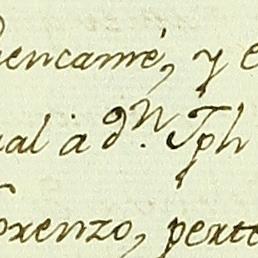 uencamé, y e
ual á dⁿ. Jph
Lorenzo, perte